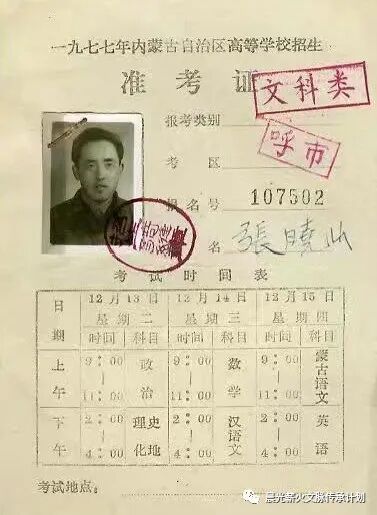 一九七七年内蒙古自治区高等学校招生
准考证
报考类别 文科类
考区 呼市
报名号 107502
名 張曉山
考试时间表
日期 12月13日 星期二 12月14日 星期三 12月15日 星期四
时间 科目 时间 科目 时间 科目
上午 9:00—11:00 政治 9:00—11:00 数学 9:00—11:00 蒙古语文
下午 2:00—4:00 理化 史地 2:00—4:00 汉语文 2:00—4:00 英语
考试地点:
晨光薪火文脉传承计划